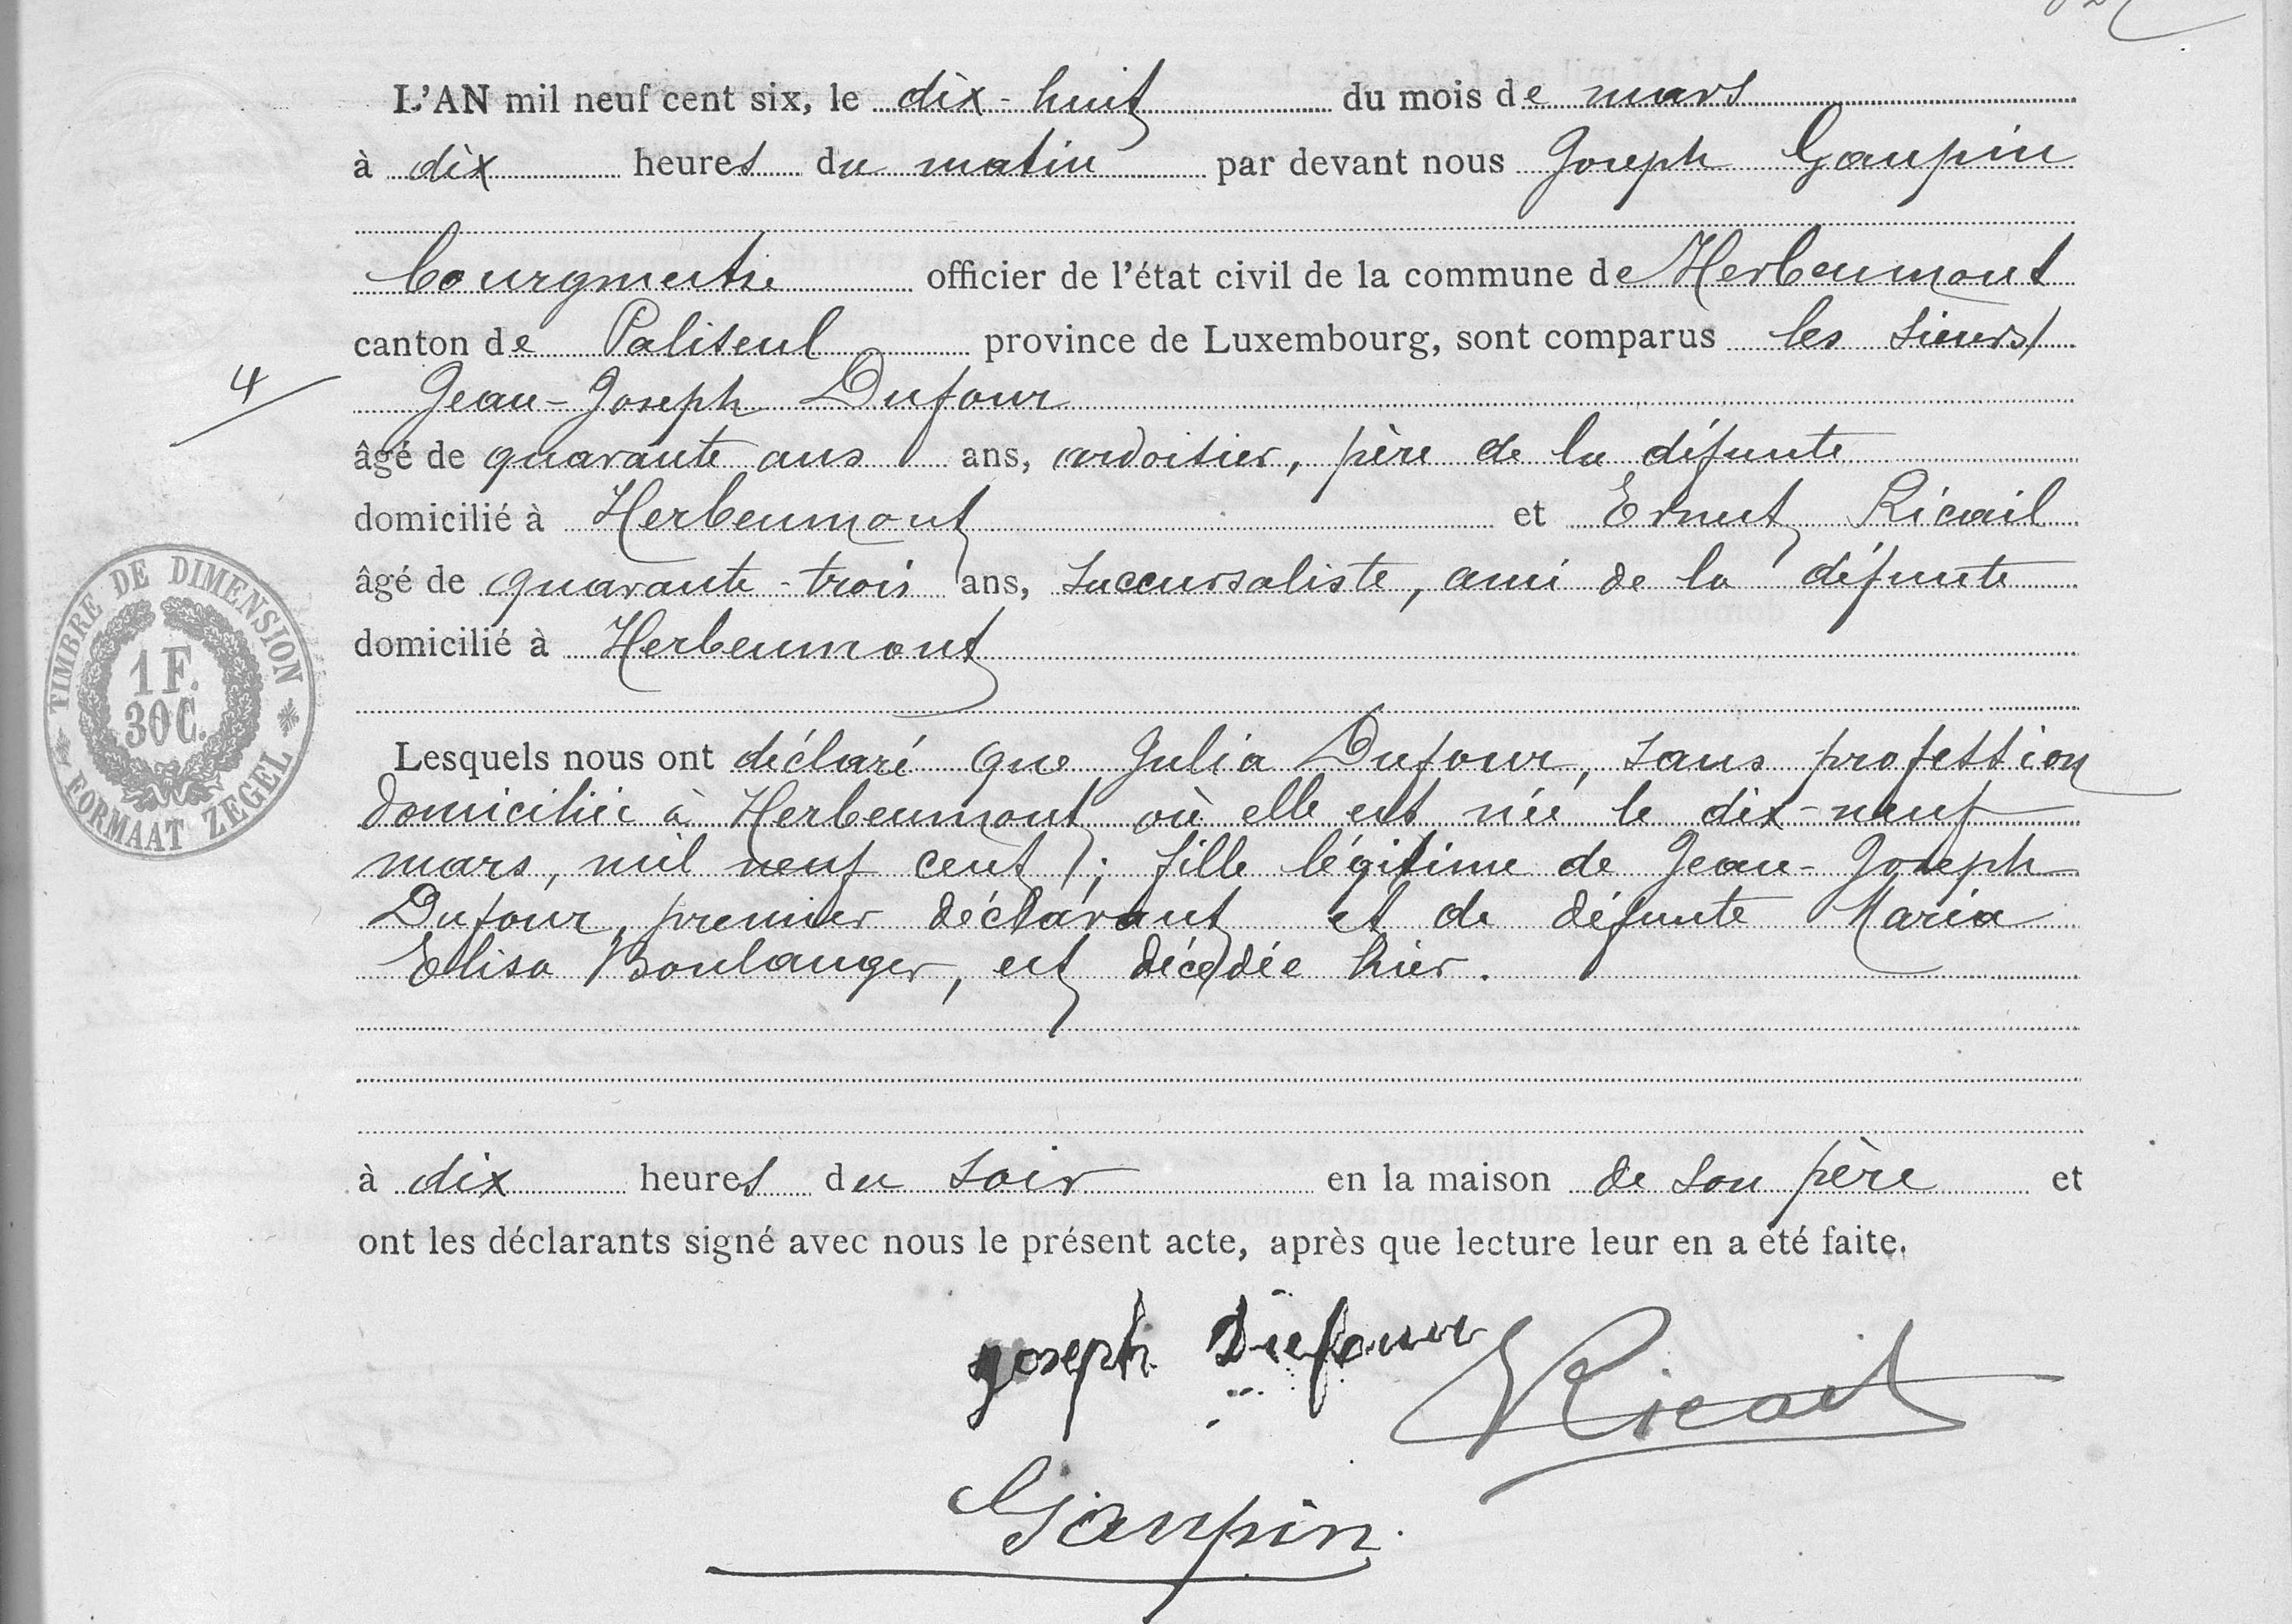 L'AN mil neuf cent six, le dix-huit du mois de mars
à dix heures du matin par devant nous Joseph Gaupin
bourgmestre officier de l'état civil de la commune de Herbeumont
canton de Paliseul province de Luxembourg, sont comparus les sieurs
4
Jean-Joseph Dufour
âgé de quarante ans ans, ardoisier, père de la défunte
domicilié à Herbeumont et Ernest Ricail
âgé de quarante-trois ans, succursaliste, ami de la défunte
domicilié à Herbeumont
TIMBRE DE DIMENSION
1 F.
30 C.
FORMAAT ZEGEL
Lesquels nous ont déclaré que Julia Dufour, sans profession
domiciliée à Herbeumont où elle est née le dix-neuf
mars, mil neuf cent; fille légitime de Jean-Joseph
Dufour, premier déclarant et de défunte Maria
Elisa Boulanger, est décédée hier.
à dix heures du soir en la maison de son père et
ont les déclarants signé avec nous le présent acte, après que lecture leur en a été faite.
Joseph Dufour Ricail
Gaupin